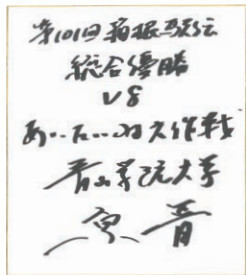 第101回箱根駅伝
総合優勝
V8
あいたいね大作戦
青山学院大学
原晋